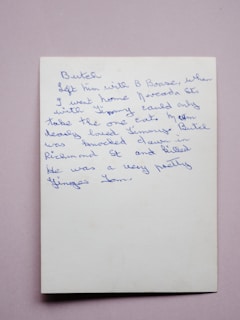 Butch
Left him with B Brose, when
I went home Norcada Sts
with Timmy could only
take the one cats Mum
dearly loved Timmy. Butch
was knocked down in
Richmond St and killed
He was a very pretty
Ginger Tom.